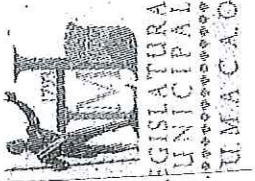 EGISLATURA
UNICIPAL
UMACAO